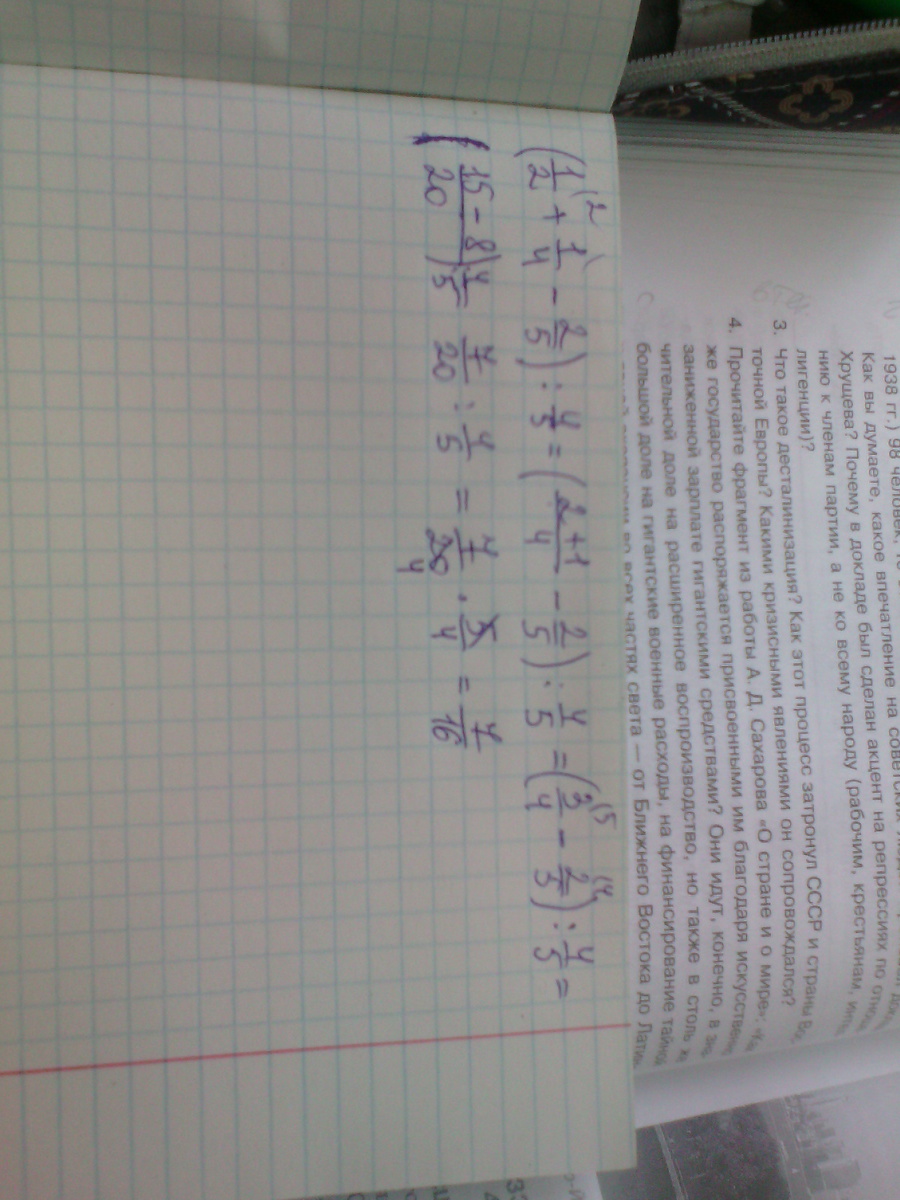 (1/2 + 1/4 - 2/5) : 4/5 = (2+1/4 - 2/5) : 4/5 = (3/4 - 2/5) : 4/5 =
(15 - 8/20) 4/5 = 7/20 : 4/5 = 7/20 · 5/4 = 7/16
1938 гг.) 98 человек,
Как вы думаете, какое впечатление на советских
Хрущева? Почему в докладе был сделан акцент на репрессиях по отно
нию к членам партии, а не ко всему народу (рабочим, крестьянам,
лигенции)?
3. Что такое десталинизация? Как этот процесс затронул СССР и страны Во
точной Европы? Какими кризисными явлениями он сопровождался?
4. Прочитайте фрагмент из работы А. Д. Сахарова «О стране и о мире»:
же государство распоряжается присвоенными им благодаря искусственно
заниженной зарплате гигантскими средствами? Они идут, конечно, в
чительной доле на расширенное воспроизводство, но также в столь ж
большой доле на гигантские военные расходы, на финансирование тайной
во всех частях света — от Ближнего Востока до Лати